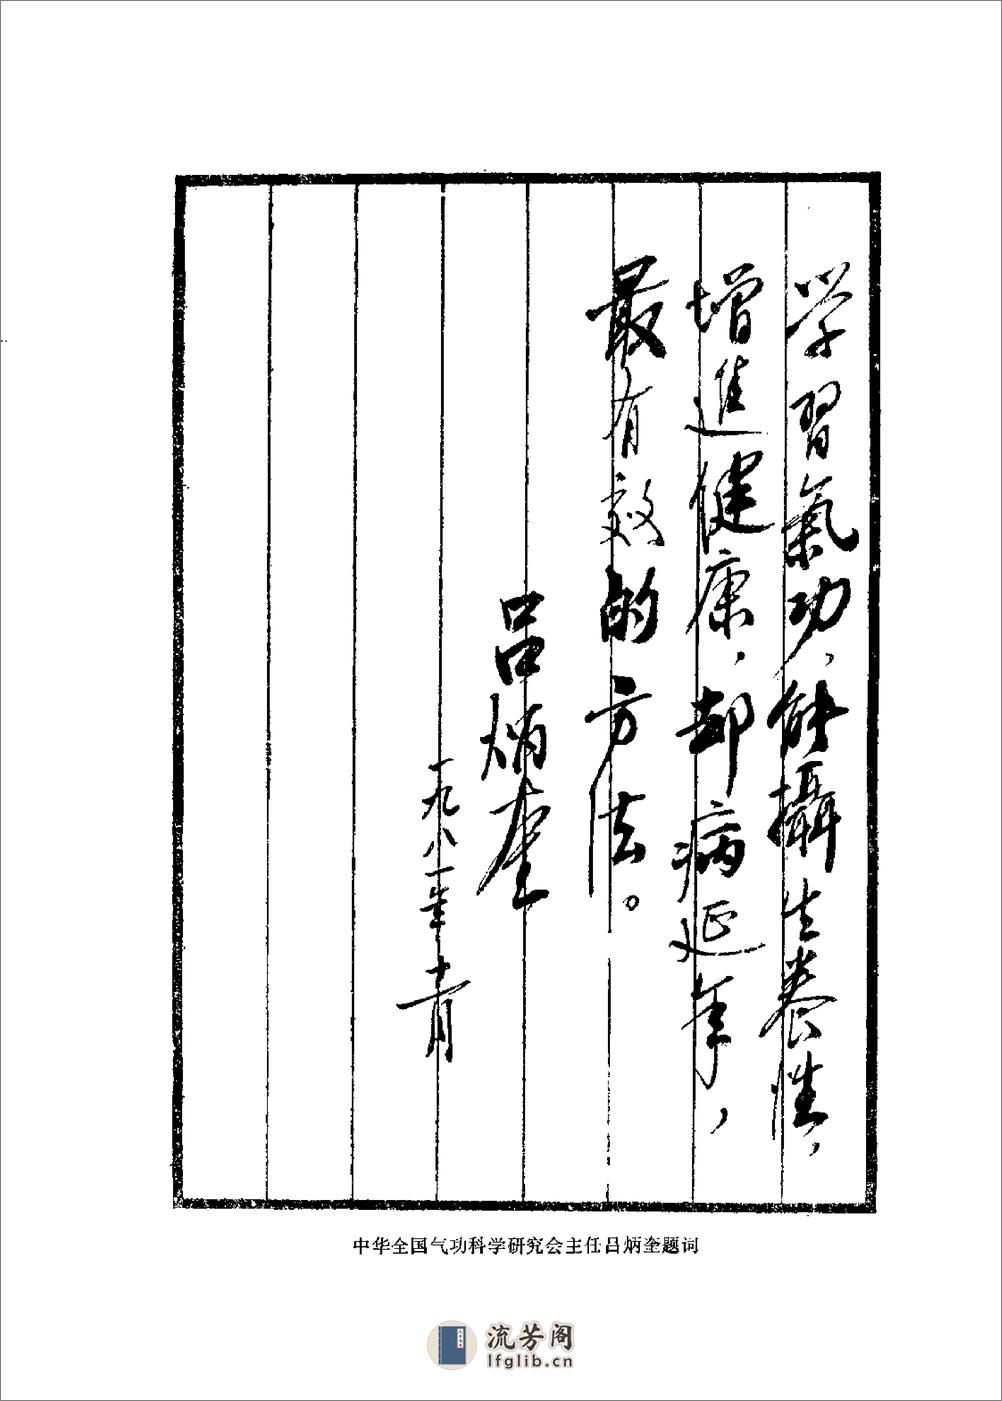 学習氣功、能攝生養性，
增進健康，却病延年，
最有效的方法。
吕炳奎
一九八一年十一月
中华全国气功科学研究会主任吕炳奎题词
流芳阁
lfglib.cn